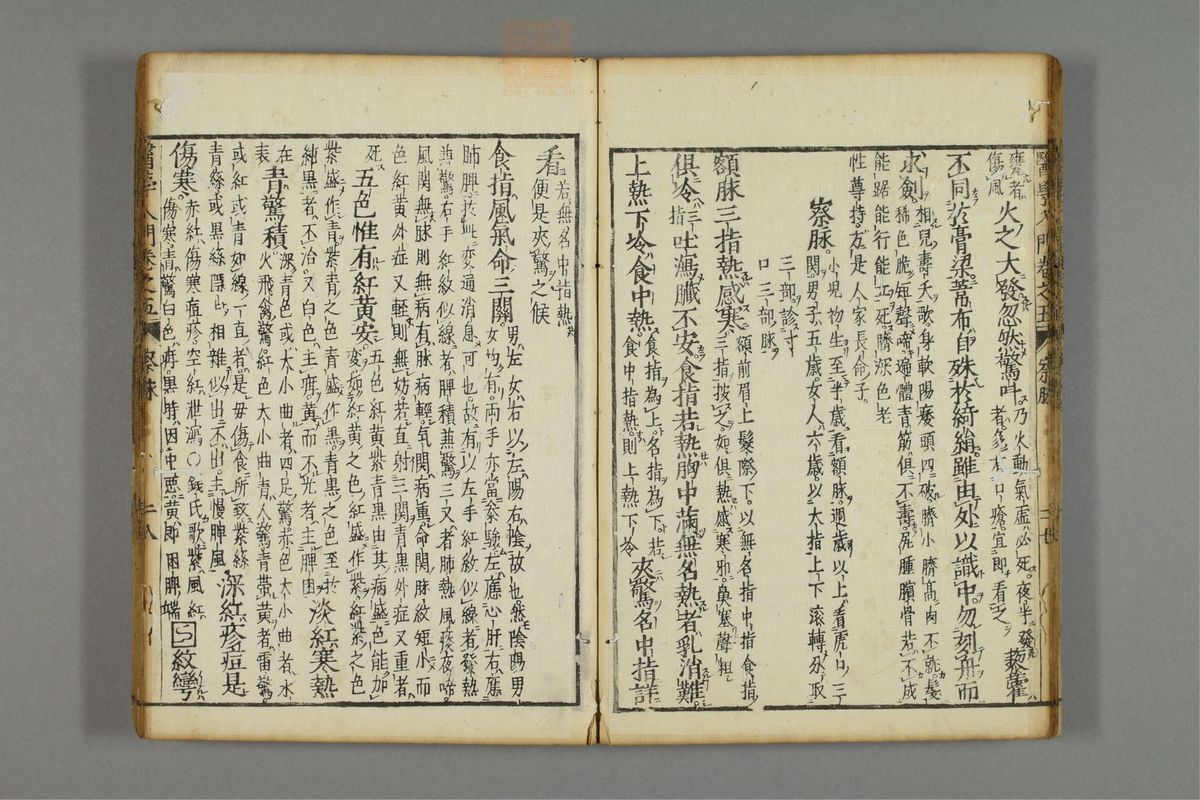 壅者
傷風
火之大發忽然驚叫
乃火動氣虛必死夜半發
者多有口瘡宜卽看之
藜藿
不同於膏粱萘布自殊於綺絹雖由外以識中勿刻舟而
求劍
相兒壽夭歌身軟陽痿頭四破臍小臍高肉不就髮
稀色脆短聲啼遍體青筋俱不壽尻腫臏骨若不成
能踞能行能立死臍深色老
性尊持方是人家長命子
察脉
小兒物生至半歲看額脉週歲以上看虎口三
關男子五歲女人六歲以大指上下滾轉分取
三部診寸
口三部脉
額脉三指熱感寒
額前眉上髮際下以無名指中指食指
三指按之如俱熱感寒邪鼻塞聲粗
俱冷
三指
吐瀉臟不安食指若熱胸中滿無名熱者乳消難
上熱下冷食中熱
食指為上名指為下若
食中指熱則上熱下冷
夾驚名中指詳
看
若無名中指熱
便是夾驚之候
食指風氣命三關
男左女右以左陽右陰故也然陰陽男
女均有兩手亦當參驗左應心肝右應
肺脾於此変通消息可也故有以左手紅紋似線者發熱
兼驚右手紅紋似線者脾積兼驚三叉者肺熱風痰夜啼
風關無脉則無病有脉病輕氣関病重命関脉紋短小而
色紅黄外症又輕則無妨若直射三関青黒外症又重者
死
五色惟有紅黄安
五色紅黄紫青黒由其病盛色能加
変如紅黄之色紅盛作紫紅紫之色
紫盛作青紫青之色青盛作黒青黒之色至於
純黒者不治又白色主疳黄而不光者主脾困
淡紅寒熱
在
表
青驚積
深青色或大小曲者四足驚赤色大小曲者水
火飛禽驚紅色大小曲青人驚青帶黄者雷驚
或紅或青如線一直者是母傷食所致紫絲
青絲或黒絲隱出相雜似出不出主慢脾風
深紅疹痘是
傷寒
赤紅傷寒痘疹空紅泄瀉○錢氏歌紫風紅
傷寒青驚白色疳黒時因中惡黄卽困脾端
紋彎
醫學入門卷之五
察脉